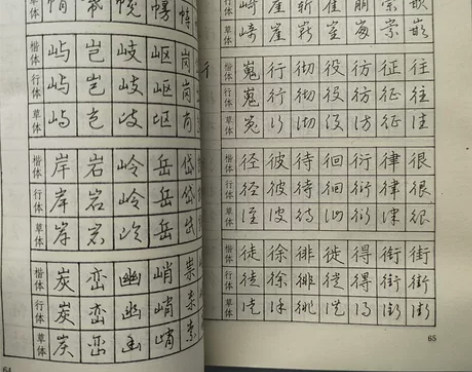 楷体 屿 岂 岐 岖 岗
行体 屿 岂 岐 岖 岗
草体 屿 岂 岐 岖 岗
楷体 岸 岩 岭 岳 岱
行体 岸 岩 岭 岳 岱
草体 岸 岩 岭 岳 岱
楷体 炭 峦 幽 峭 崇
行体 炭 峦 幽 峭 崇
草体 炭 峦 幽 峭 崇
行
崎 崖 崭 崔 崩 崇 嵌
草体 崎 崖 崭 崔 崩 崇 嵌
楷体 嵬 行 彻 役 彷 征 往
行体 嵬 行 彻 役 彷 征 往
草体 嵬 行 彻 役 彷 征 往
楷体 径 彼 待 徊 衍 律 很
行体 径 彼 待 徊 衍 律 很
草体 径 彼 待 徊 衍 律 很
楷体 徒 徐 徘 徙 得 衔 街
行体 徒 徐 徘 徙 得 衔 街
草体 徒 徐 徘 徙 得 衔 街
65